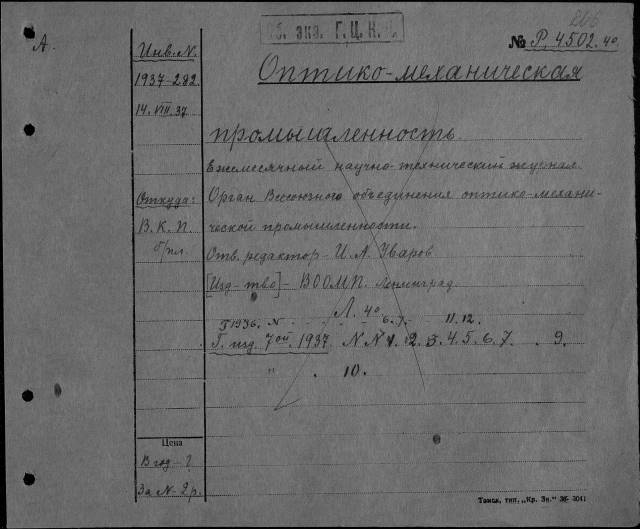 А.
Об. экз. Г.Ц.К.П.
№ Р, 4502. 4о
Инв. N.
1937-282
14. VIII. 37
Откуда:
В. К. П.
б/пл.
Оптико-механическая
промышленность.
Ежемесячный научно-технический журнал.
Орган Всесоюзного объединения оптико-механи-
ческой промышленности.
Отв. редактор - И. А. Уваров
[Изд-тво] - ВООМП. Ленинград.
Л. 4о
1936. N 6. 7. 11. 12.
Г. изд. 7ой. 1937 N N 1. 2. 3. 4. 5. 6. 7. . 9.
" . 10.
Цена
В год - ?
За N - 2 р.
Томск, тип. „Кр. Зн." 36-3041